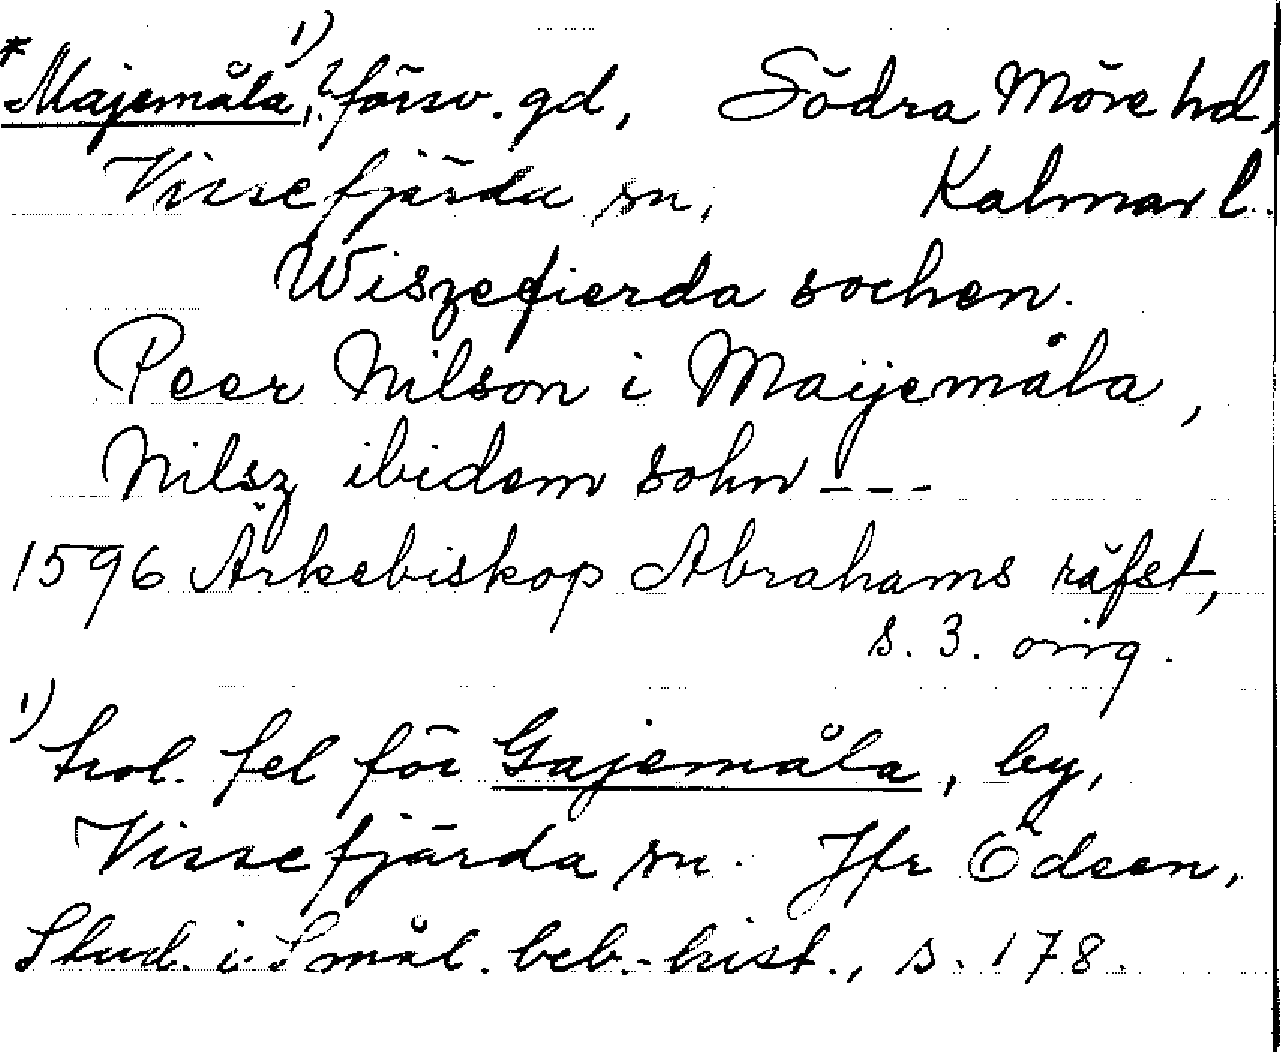 *Majemåla,¹⁾ ? försv. gd, Södra Möre hd,
Vissefjärda sn, Kalmar l.
Wiszefierda sochen.
Peer Nilson i Maijemåla,
Nilsz ibidem sohn ---
1596 Ärkebiskop Abrahams räfst,
s. 3. orig.
¹⁾ trol. fel för Gajemåla, by,
Vissefjärda sn. Jfr Ödeen,
Stud. i Smål. beb.-hist., s. 178.